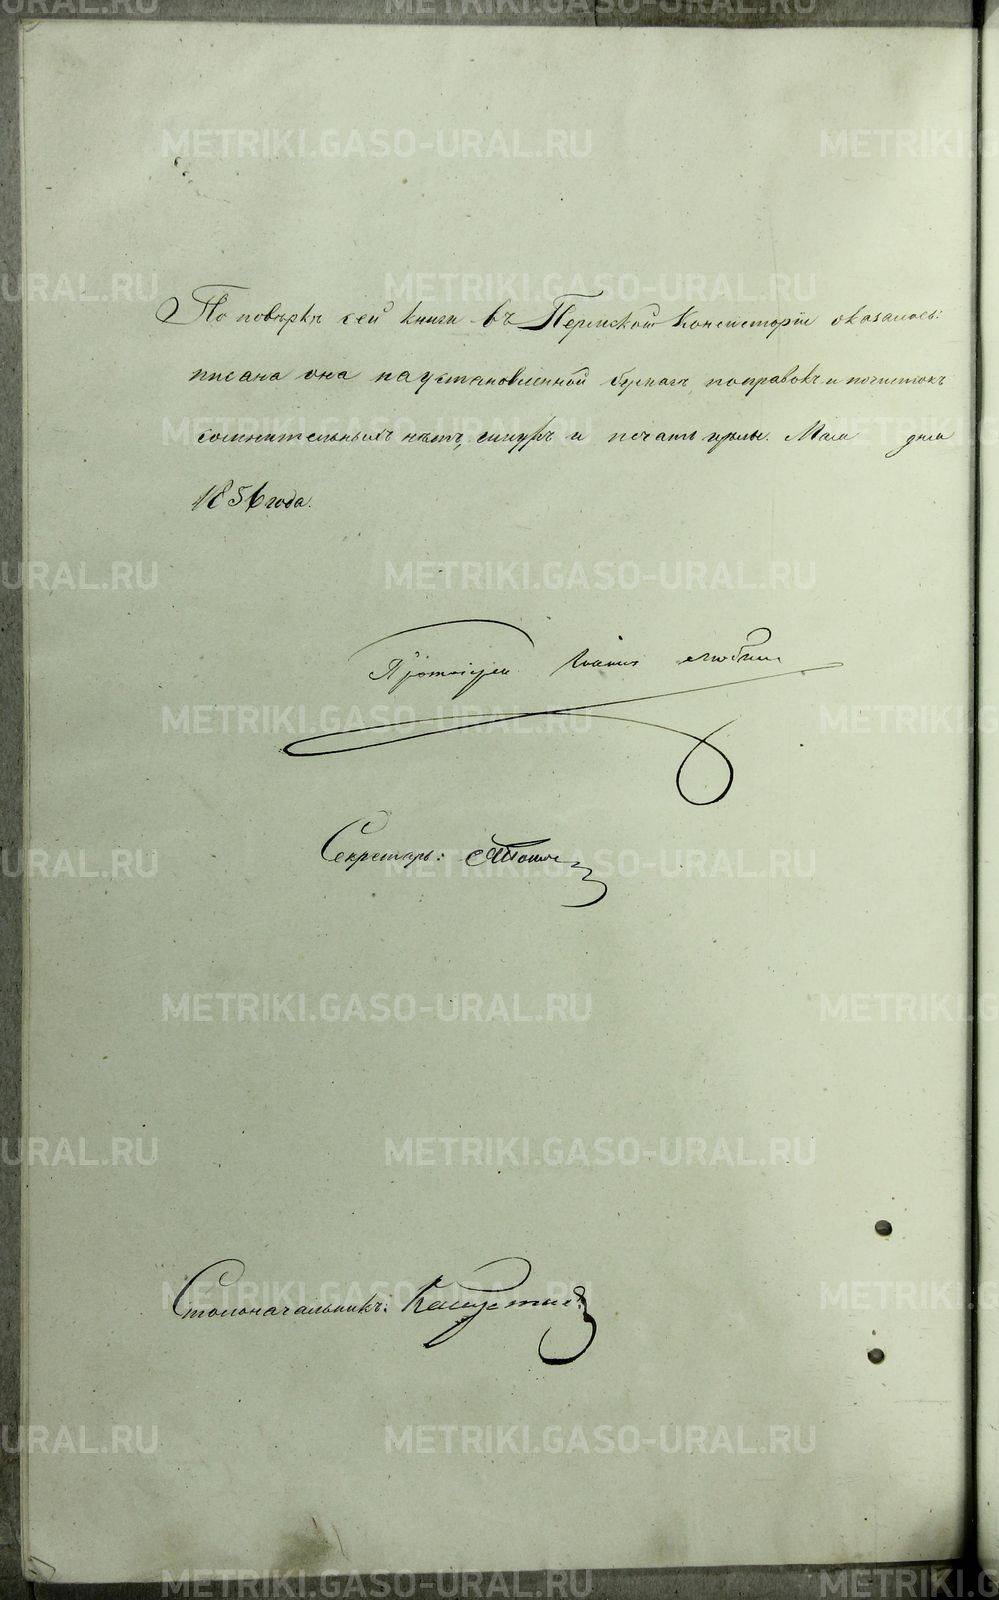 По повѣркѣ сей книги въ Пермской Консисторіи оказалось:
писана она на установленной бумагѣ, поправокъ и почистокъ
сомнительныхъ нѣтъ, шнуръ и печать цѣлы. Мая дня
1856 года.
Протоіерей Іоаннъ
Секретарь:
Столоначальникъ: Капустинъ
METRIKI.GASO-URAL.RU